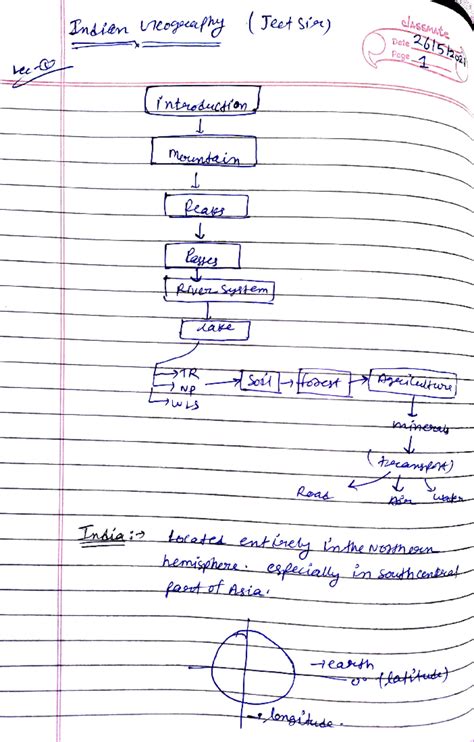 Indian Geography (Jeet Sir)
classmate
Date 26/5/2021
Page 1
Lec-①
introduction
Mountain
Peaks
Passes
River System
Lake
TR
NP
WLS
Soil
forest
Agriculture
minerals
(transport)
Road
Air
Water
India :→ Located entirely in the Northern
hemisphere. especially in south central
part of Asia.
→ earth
0° (latitude)
→ longitude.